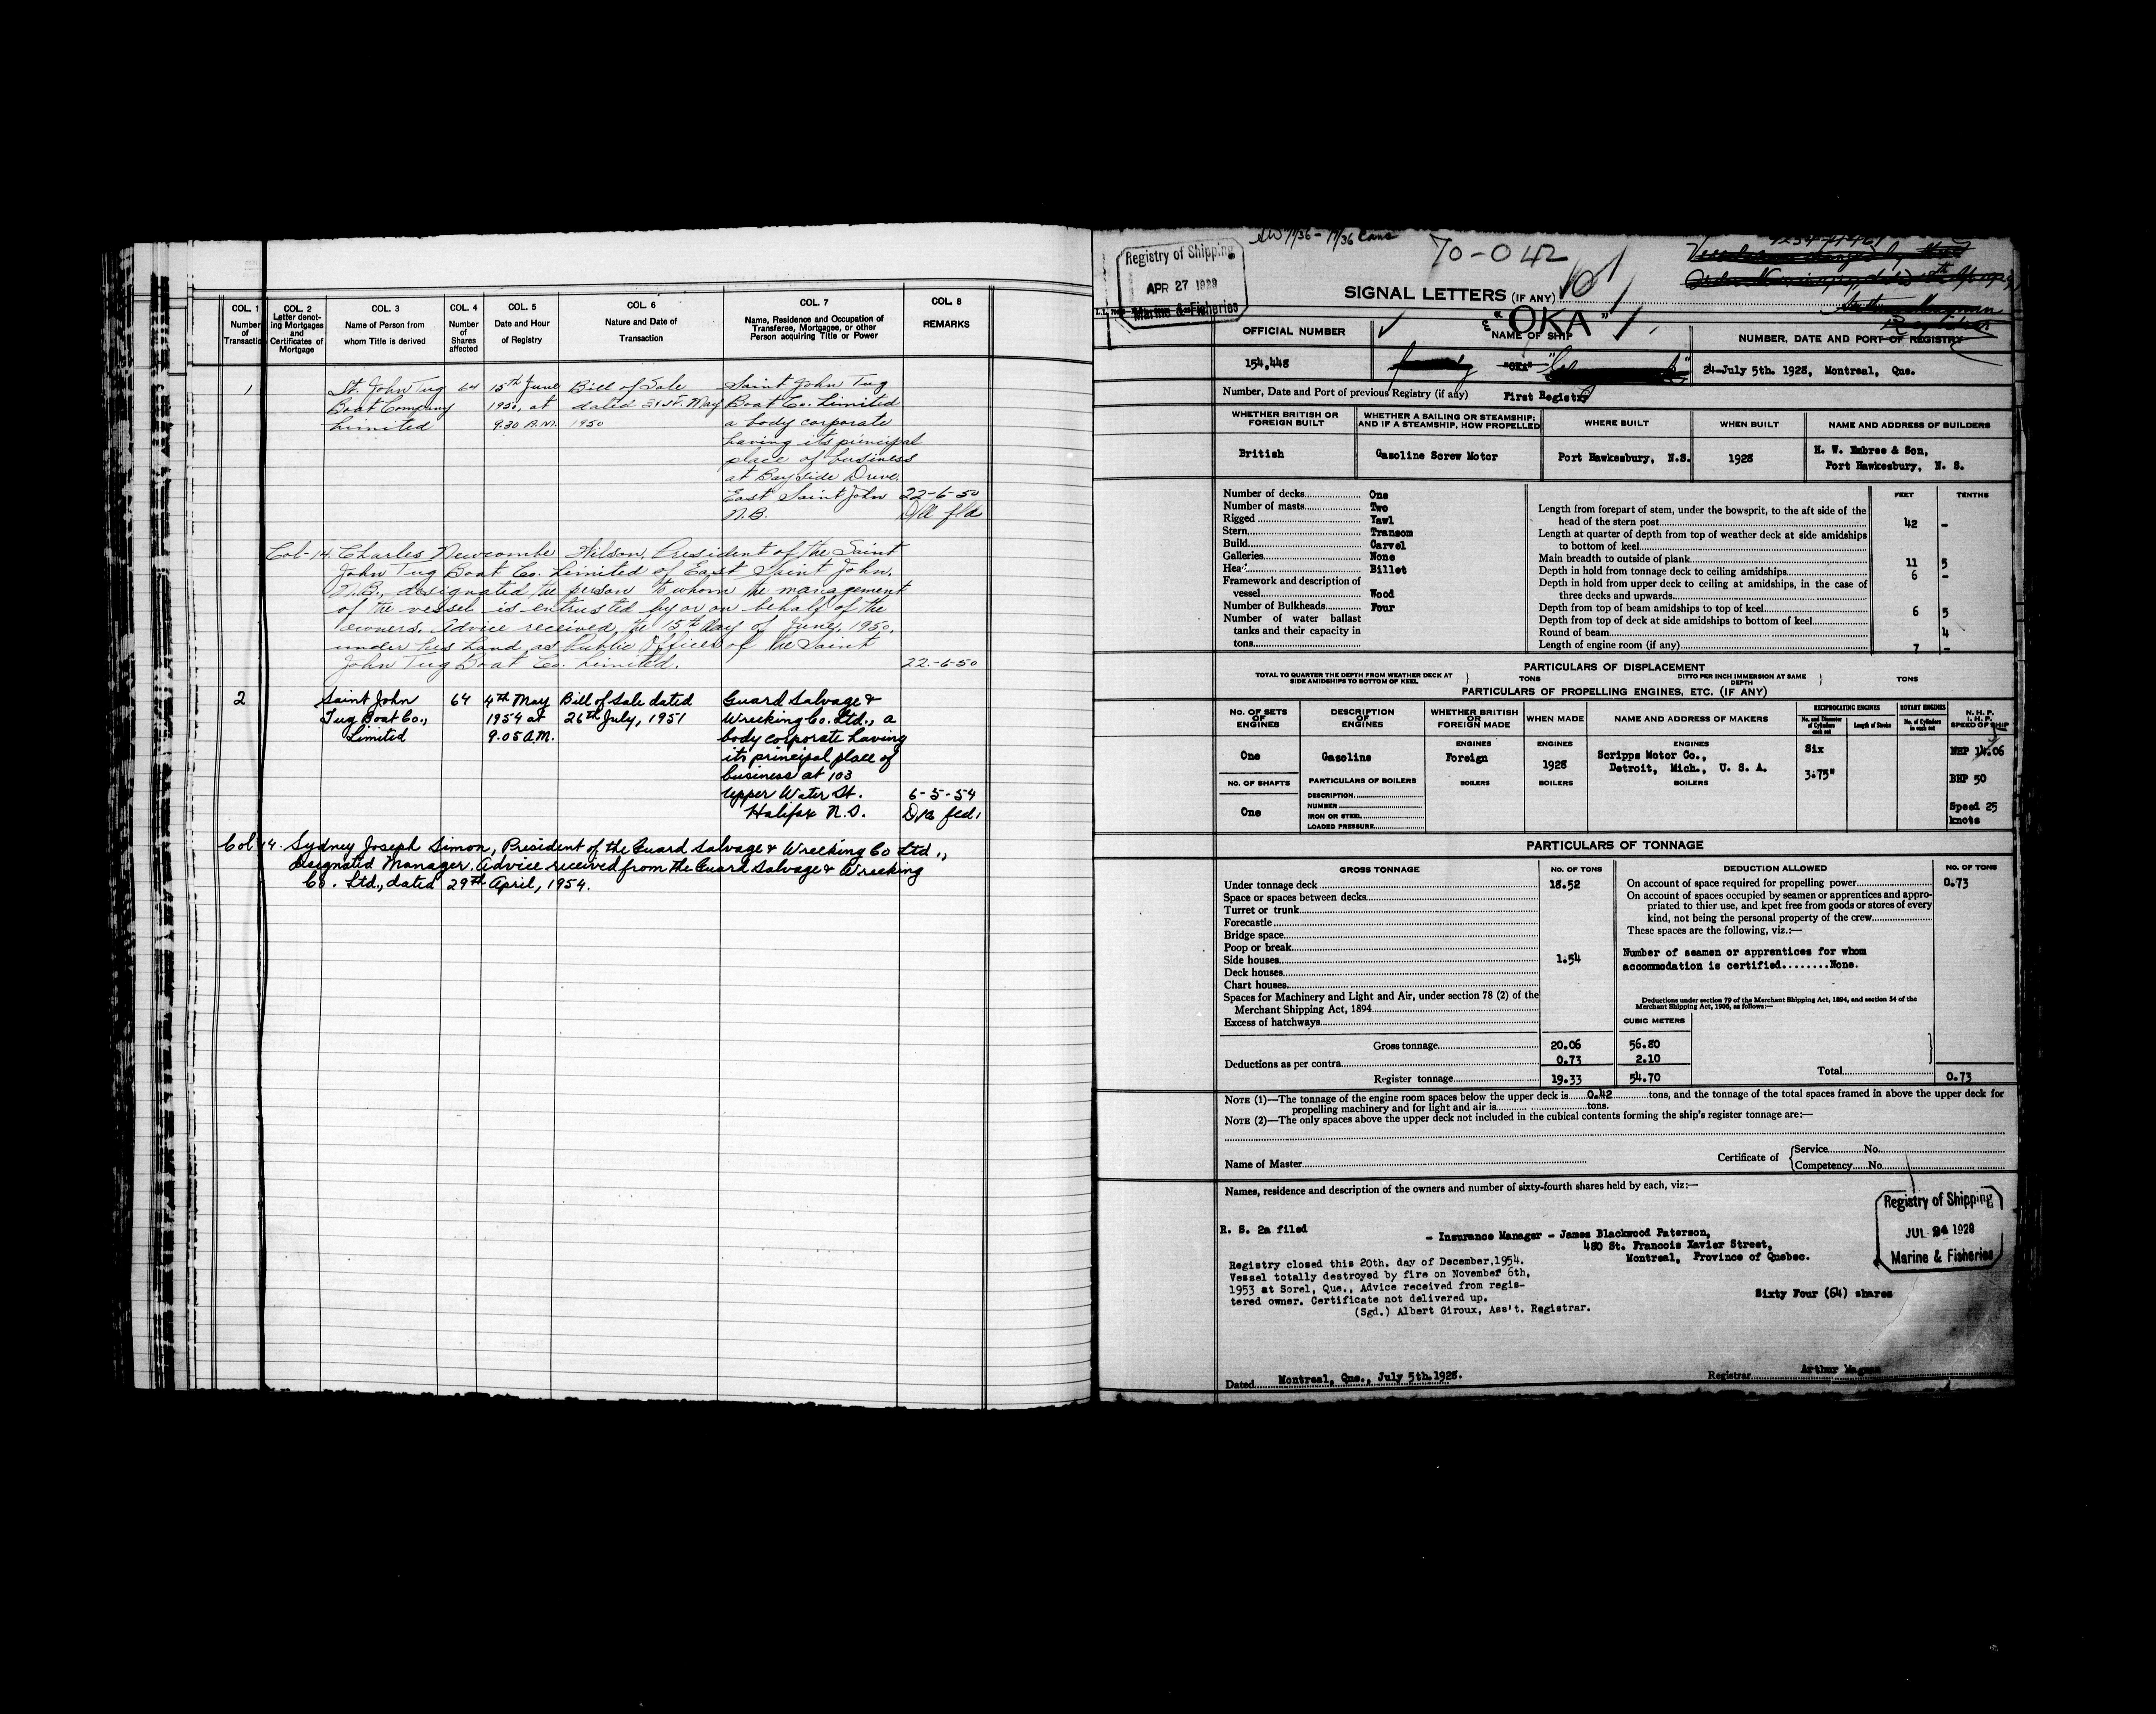 COL. 1 COL. 2 COL. 3 COL. 4 COL. 5 COL. 6 COL. 7 COL. 8
Number of Transaction
Letter denoting Mortgages and Certificates of Mortgage
Name of Person from whom Title is derived
Number of Shares affected
Date and Hour of Registry
Nature and Date of Transaction
Name, Residence and Occupation of Transferee, Mortgagee, or other Person acquiring Title or Power
REMARKS
1 St. John Tug 64 15th June Bill of Sale Saint John Tug
Boat Company 1950, at dated 31st. May Boat Co. Limited
Limited 9.30 A.M. 1950 a body corporate
having its principal
place of business
at Bayside Drive,
East Saint John 22-6-50
N.B.
Col-14. Charles Newcombe Wilson, President of the Saint
John Tug Boat Co. Limited of East Saint John,
N.B., designated the person to whom the management
of the vessel is entrusted by or on behalf of the
owners. Advice received, the 15th day of June, 1950,
under his hand, as Public Officer of the Saint
John Tug Boat Co. Limited. 22-6-50
2 Saint John 64 4th May Bill of Sale dated Guard Salvage &
Tug Boat Co., 1954 at 26th July, 1951 Wrecking Co. Ltd., a
Limited 9.05 A.M. body corporate having
its principal place of
business at 103
Upper Water St. 6-5-54
Halifax N.S.
Col 14. Sydney Joseph Simon, President of the Guard Salvage & Wrecking Co Ltd.,
designated Manager. Advice received from the Guard Salvage & Wrecking
Co. Ltd., dated 29th April, 1954.
70-042
Registry of Shipping
APR 27 1929
Marine & Fisheries
SIGNAL LETTERS (IF ANY)
"OKA"
OFFICIAL NUMBER NAME OF SHIP NUMBER, DATE AND PORT OF REGISTRY
154,448 "OKA" 24-July 5th. 1928, Montreal, Que.
Number, Date and Port of previous Registry (if any) First Registry
WHETHER BRITISH OR FOREIGN BUILT
WHETHER A SAILING OR STEAMSHIP; AND IF A STEAMSHIP, HOW PROPELLED
WHERE BUILT
WHEN BUILT
NAME AND ADDRESS OF BUILDERS
British Gasoline Screw Motor Port Hawkesbury, N.S. 1928 H. W. Embree & Son,
Port Hawkesbury, N. S.
FEET TENTHS
Number of decks One
Number of masts Two
Rigged Yawl
Stern Transom
Build Carvel
Galleries None
Head Billet
Framework and description of
vessel Wood
Number of Bulkheads Four
Number of water ballast
tanks and their capacity in
tons
Length from forepart of stem, under the bowsprit, to the aft side of the
head of the stern post 42 -
Length at quarter of depth from top of weather deck at side amidships
to bottom of keel
Main breadth to outside of plank 11 5
Depth in hold from tonnage deck to ceiling amidships 6 -
Depth in hold from upper deck to ceiling at amidships, in the case of
three decks and upwards
Depth from top of beam amidships to top of keel 6 5
Depth from top of deck at side amidships to bottom of keel
Round of beam 4
Length of engine room (if any) 7 -
PARTICULARS OF DISPLACEMENT
TOTAL TO QUARTER THE DEPTH FROM WEATHER DECK AT SIDE AMIDSHIPS TO BOTTOM OF KEEL } TONS DITTO PER INCH IMMERSION AT SAME DEPTH } TONS
PARTICULARS OF PROPELLING ENGINES, ETC. (IF ANY)
NO. OF SETS OF ENGINES
DESCRIPTION OF ENGINES
WHETHER BRITISH OR FOREIGN MADE
WHEN MADE
NAME AND ADDRESS OF MAKERS
RECIPROCATING ENGINES
No. and Diameter of Cylinders each set
Length of Stroke
ROTARY ENGINES
No. of Cylinders in each set
N. H. P.
I. H. P.
SPEED OF SHIP
ENGINES ENGINES ENGINES
One Gasoline Foreign 1928 Scripps Motor Co., Six NHP 14.06
Detroit, Mich., U. S. A. 3.75"
NO. OF SHAFTS PARTICULARS OF BOILERS BOILERS BOILERS BOILERS BHP 50
DESCRIPTION
NUMBER
One IRON OR STEEL Speed 25
LOADED PRESSURE knots
PARTICULARS OF TONNAGE
GROSS TONNAGE NO. OF TONS DEDUCTION ALLOWED NO. OF TONS
Under tonnage deck 18.52
Space or spaces between decks
Turret or trunk
Forecastle
Bridge space
Poop or break
Side houses 1.54
Deck houses
Chart houses
Spaces for Machinery and Light and Air, under section 78 (2) of the
Merchant Shipping Act, 1894
Excess of hatchways
On account of space required for propelling power 0.73
On account of spaces occupied by seamen or apprentices and appro-
priated to thier use, and kpet free from goods or stores of every
kind, not being the personal property of the crew
These spaces are the following, viz.:—
Number of seamen or apprentices for whom
accommodation is certified........None.
Deductions under section 79 of the Merchant Shipping Act, 1894, and section 54 of the
Merchant Shipping Act, 1906, as follows:—
CUBIC METERS
Gross tonnage 20.06 56.80
Deductions as per contra 0.73 2.10
Register tonnage 19.33 54.70
Total 0.73
NOTE (1)—The tonnage of the engine room spaces below the upper deck is 0.42 tons, and the tonnage of the total spaces framed in above the upper deck for
propelling machinery and for light and air is tons.
NOTE (2)—The only spaces above the upper deck not included in the cubical contents forming the ship's register tonnage are:—
Name of Master Certificate of { Service No.
Competency No.
Names, residence and description of the owners and number of sixty-fourth shares held by each, viz:—
Registry of Shipping
JUL 24 1928
Marine & Fisheries
R. S. 2a filed
- Insurance Manager - James Blackwood Paterson,
480 St. Francois Xavier Street,
Montreal, Province of Quebec.
Registry closed this 20th. day of December,1954.
Vessel totally destroyed by fire on November 6th,
1953 at Sorel, Que., Advice received from regis-
tered owner. Certificate not delivered up.
(Sgd.) Albert Giroux, Ass't. Registrar.
Sixty Four (64) shares
Dated Montreal, Que., July 5th.1928.
Registrar Arthur Magnan